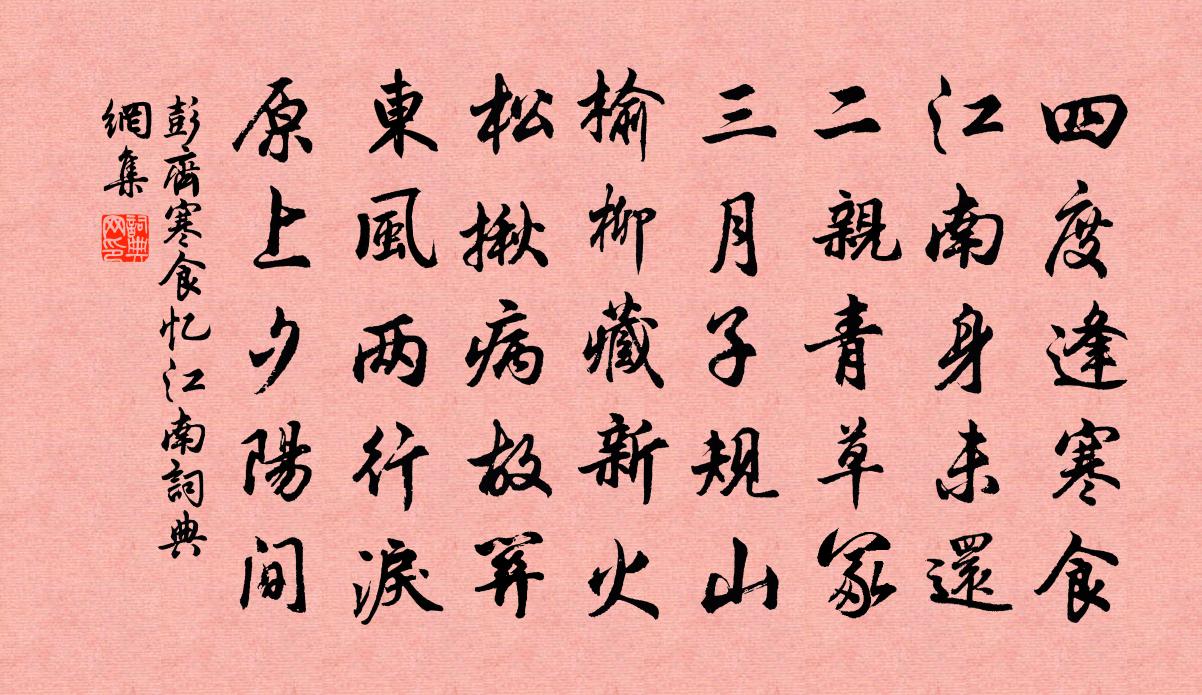 四度逢寒食
江南身未還
二親青草冢
三月子規山
榆柳藏新火
松楸病故關
東風两行淚
原上夕陽間
彭齊寒食忆江南詞典
網集
詞典
网印